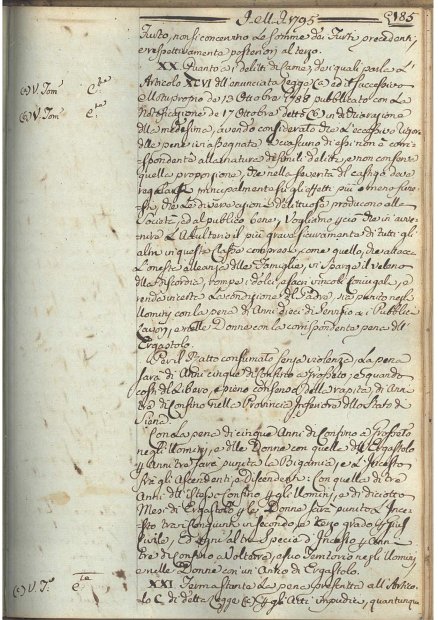 1795
185
Furto, non si concorrino le somme dei Furti precedenti,
e respettivamente posteriori al terzo.
XX. Quanto ai delitti di Carne dei quali parla l'
(a) V. Tom
Articolo XCVI dell'enunciata Legge (a) ed il successivo
Motuproprio de' 13 Ottobre 1788 pubblicato con la
(b) V. Tom
Notificazione de' 17 Ottobre detto (b) in dichiarazione
della medesima, avendo considerato che l'eccessivo rigor
delle pene ivi assegnate a ciascuno di essi non è corri-
spondente alla natura de simili delitti, e non conserva
quella proporzione, che nella severità del castigo deve
regolarsi principalmente sugli effetti più o meno fune-
sti, che le diverse azioni delittuose producono alla
Società, ed al pubblico bene, Vogliamo perciò che in avve-
nire l'Adulterio il più grave sicuramente di tutti gli
altri in questa Classe compresi, come quello, che attacca
l'onesta alleanza delle Famiglie, vi sparge il Veleno
della discordia, rompe i dolci, e sacri vincoli Conjugali, e
rende incerta la condizione del Padre, sia punito negli
Uomini con la pena di Anni dieci di Servizio ai Pubblici
Lavori, e nelle Donne con la corrispondente pena dell'
Ergastolo.
Per il Ratto consumato senza violenza la pena
sarà di Anni cinque di Confino a Grosseto; e quando
costi del libero, e pieno consenso della rapita di An-
ni tre di Confino nella Provincia Inferiore dello Stato di
Siena.
Con la pena di cinque Anni di Confino a Grosseto
negli Uomini, e delle Donne con quella dell'Ergastolo
per Anni tre sarà punita la Bigamia, e l'Incesto
fra gli Ascendenti, e Discendenti: Con quella di tre
Anni dello Stesso Confino per gli Uomini, e di diciotto
Mesi di Ergastolo per le Donne sarà punito l'Ince-
sto tra i Congiunti in secondo, e terzo grado
Civile; Ed ogni altra Specie d'Incesto per Anni
tre di Confino a Volterra, e suo Territorio negli Uomini
e nelle Donne con un Anno di Ergastolo.
XXI. Ferma stante la pena prescritta all'Artico-
(c) V. T.
lo C. di detta Legge (c) per gli Atti impudici, quantunque